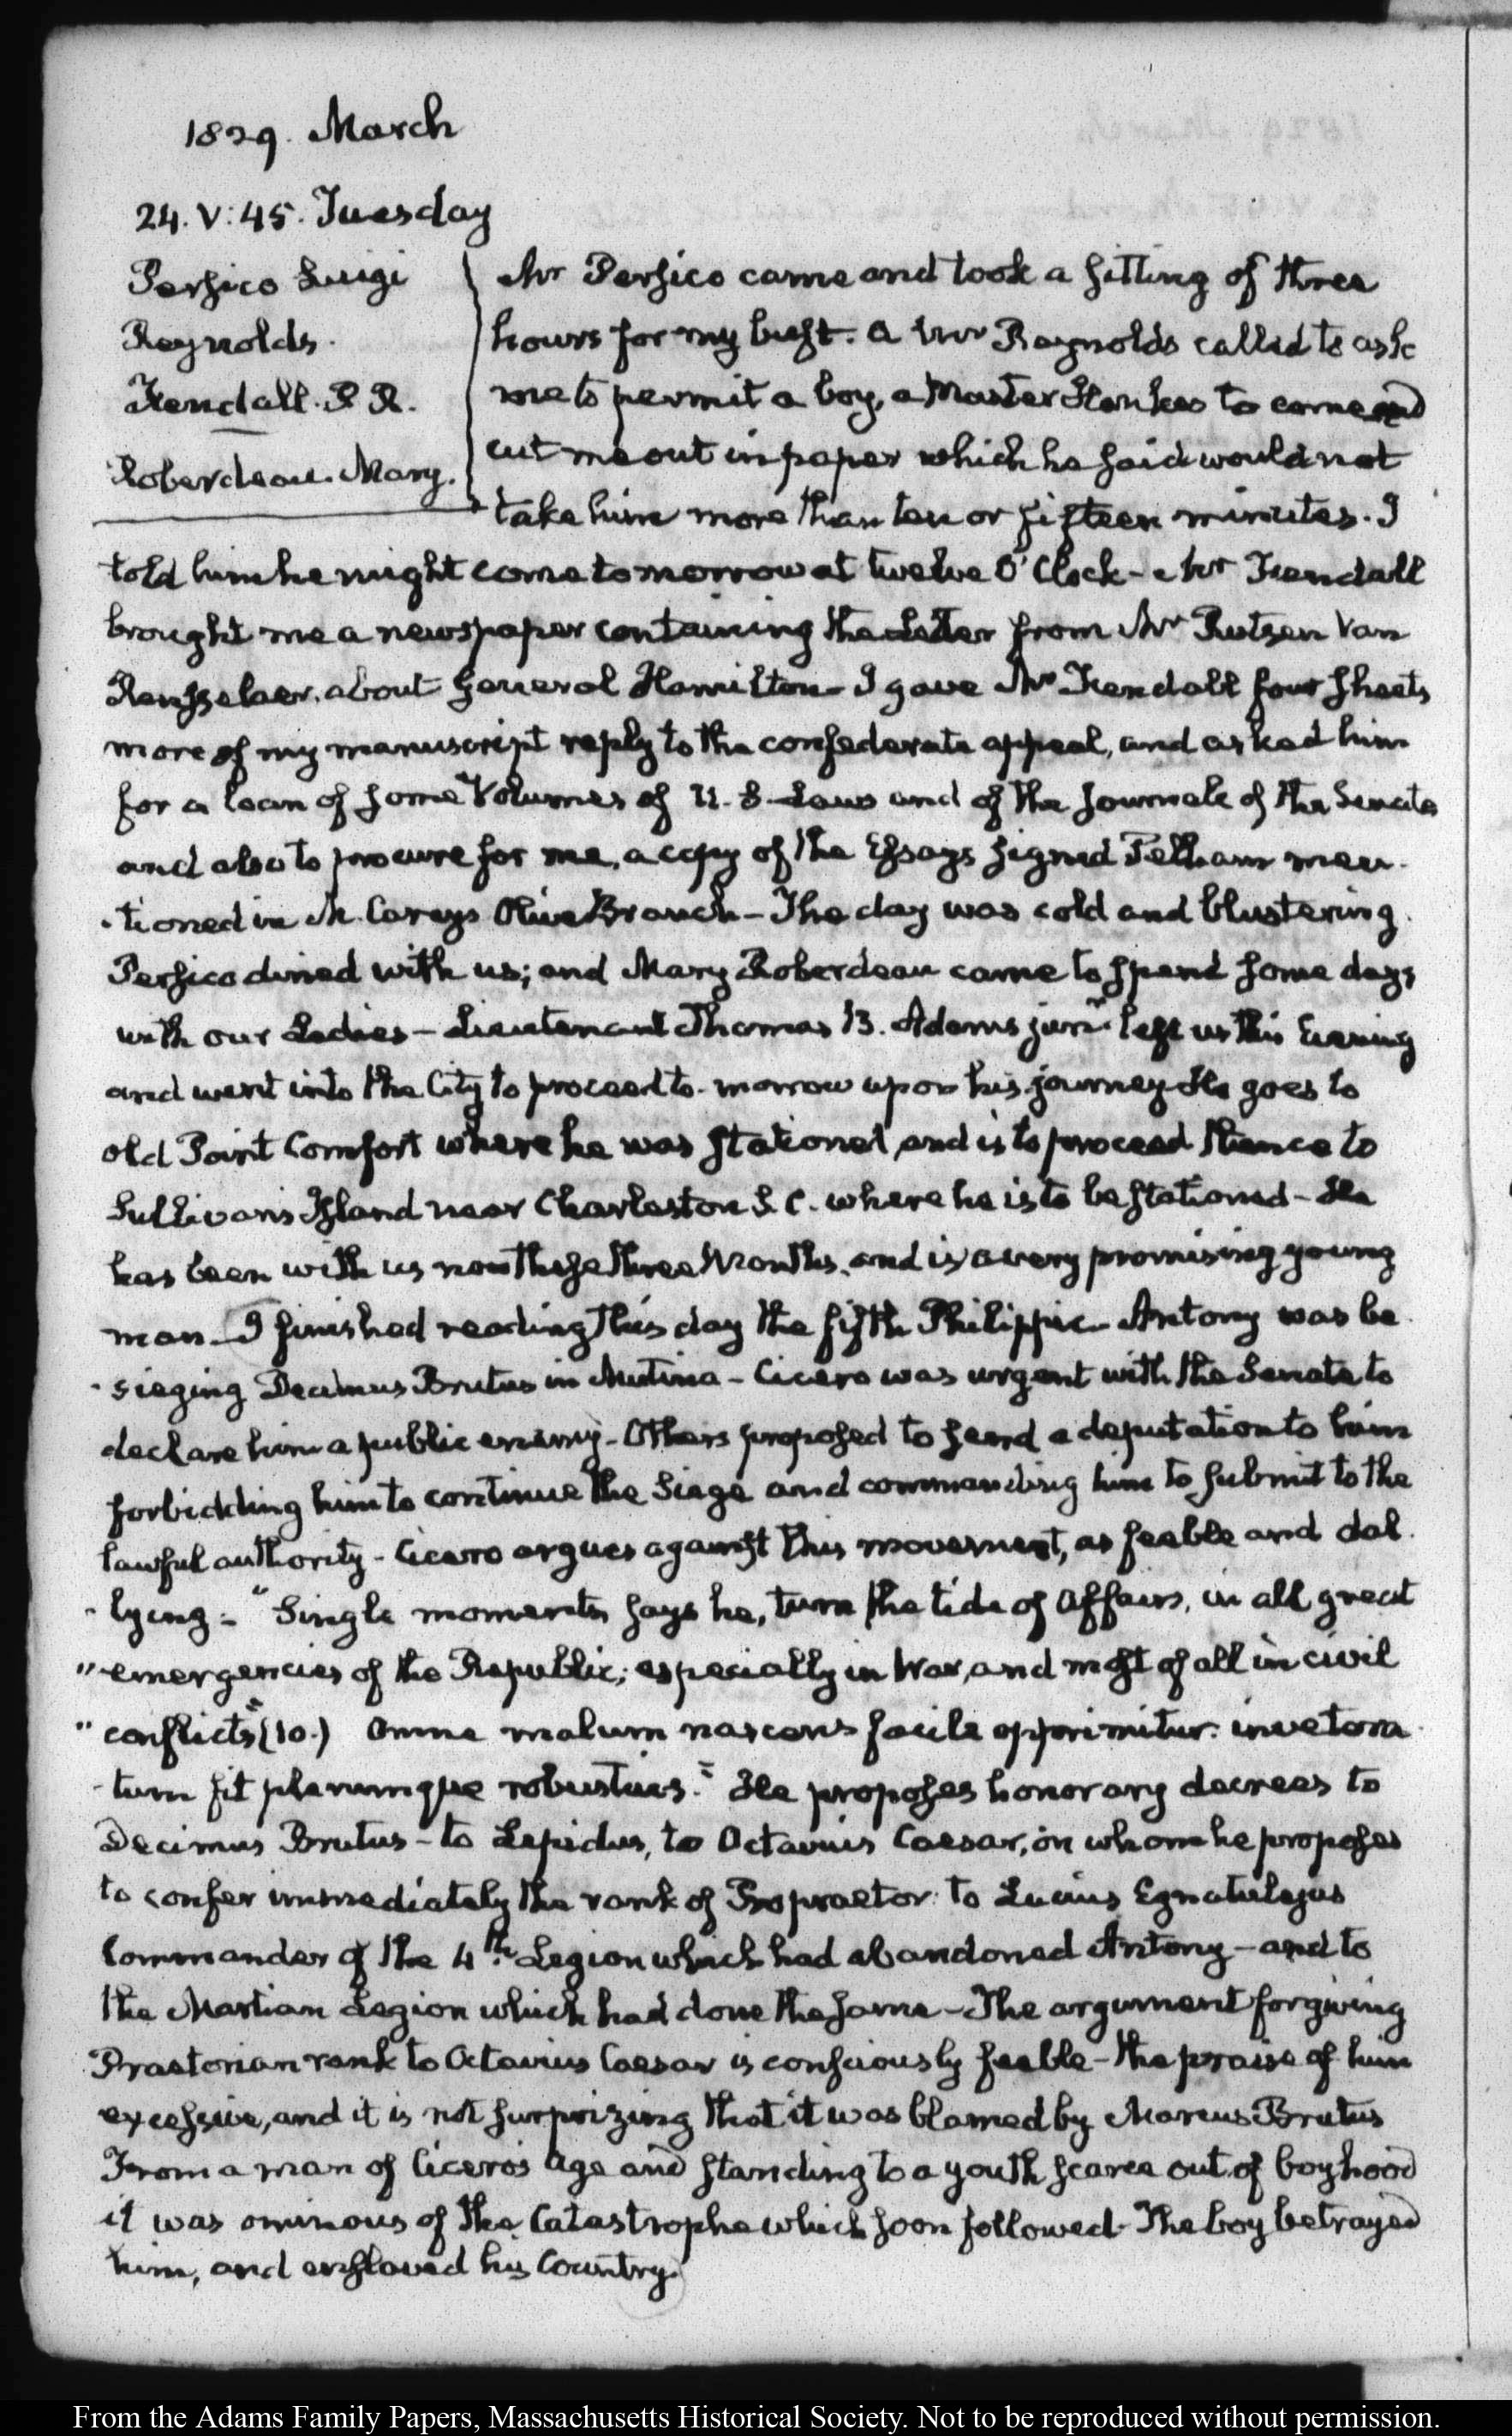 1829. March
24. V:45. Tuesday
Persico Luigi
Reynolds.
Kendall. R R.
Roberdeau. Mary.
Mr Persico came and took a sitting of three
hours for my bust. A Mr Reynolds called to ask
me to permit a boy, a Master Hankes to come and
cut me out in paper which he said would not
take him more than ten or fifteen minutes. I
told him he might come to morrow at twelve O'Clock - Mr Kendall
brought me a newspaper containing the Letter from Mr Rutsen Van
Rensselaer, about General Hamilton - I gave Mr Kendall four sheets
more of my manuscript reply to the confederate appeal, and asked him
for a loan of some Volumes of U. S. Laws and of the Journals of the Senate
and also to procure for me, a copy of the Essays signed Pelham men-
-tioned in M. Careys Olive Branch - The day was cold and blustering.
Persico dined with us; and Mary Roberdeau came to spend some days
with our Ladies - Lieutenant Thomas B. Adams junr. left us this Evening
and went into the City to proceed to-morrow upon his journey He goes to
old Point Comfort where he was stationed, and is to proceed thence to
Sullivan's Island near Charleston S. C. where he is to be stationed - He
has been with us now these three Months, and is a very promising young
man - I finished reading this day the fifth Philippic - Antony was be-
-sieging Decimus Brutus in Mutina - Cicero was urgent with the Senate to
declare him a public enemy - Others proposed to send a deputation to him
forbidding him to continue the Siege and commanding him to submit to the
lawful authority - Cicero argues against this movement, as feeble and dal-
-lying - "Single moments, says he, turn the tide of Affairs, in all great
"emergencies of the Republic; especially in War, and most of all in civil
"conflicts" (10.) Omne malum nascens facile opprimitur: invetera-
-tum fit plerumque robustius." He proposes honorary decrees to
Decimus Brutus - to Lepidus, to Octavius Caesar, on whom he proposes
to confer immediately the rank of Propraetor: to Lucius Egnatulejus
Commander of the 4th. Legion which had abandoned Antony - and to
the Martian Legion which had done the same - The argument for giving
Praetorian rank to Octavius Caesar is consciously feeble - the praise of him
excessive, and it is not surprizing that it was blamed by Marcus Brutus
From a man of Cicero's age and standing to a youth scarce out of boyhood
it was ominous of the Catastrophe which soon followed - The boy betrayed
him, and enslaved his Country.
From the Adams Family Papers, Massachusetts Historical Society. Not to be reproduced without permission.